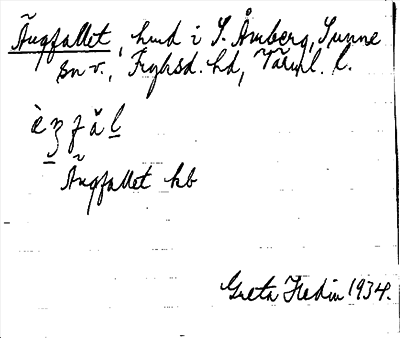 Ängfallet, hmd i S. Åmberg, Sunne
sn v., Fryksd. hd, Värml. l.
Ängfallet hb
Greta Hedin 1934.